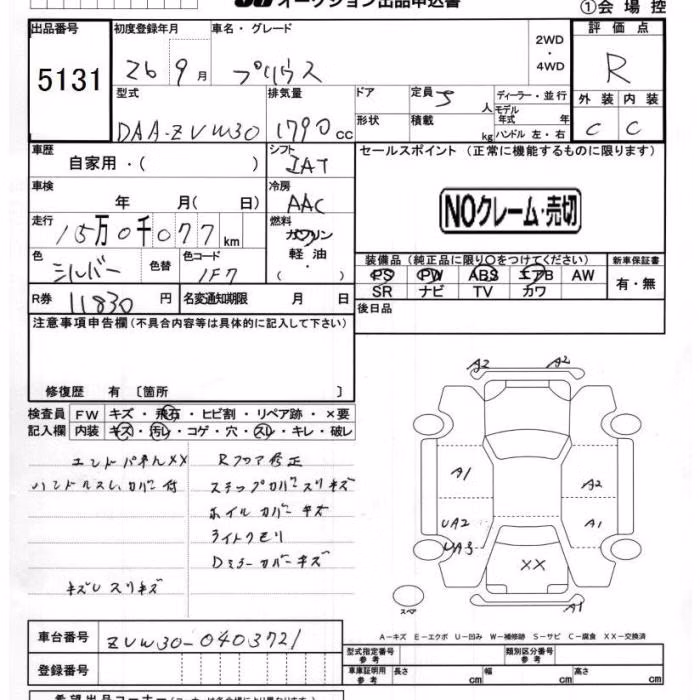 オークション出品申込書
①会場控
出品番号 5131
初度登録年月 26 9月
車名・グレード プリウス
2WD・4WD
評価点 R
外装 内装
C C
型式 DAA-ZVW30
排気量 1790 cc
ドア
形状
定員 5 人
積載 kg
ディーラー・並行
モデル年式 年
ハンドル 左・右
車歴 自家用・( )
シフト IAT
セールスポイント (正常に機能するものに限ります)
NOクレーム・売切
車検 年 月( 日)
冷房 AAC
走行 15万0千077km
燃料 ガソリン
軽油・
( )
色 シルバー 色替
色コード 1F7
装備品 (純正品に限り○をつけてください)
PS PW ABS エアB AW
SR ナビ TV カワ
新車保証書
有・無
R券 11830円
名変通知期限 月 日
後日品
注意事項申告欄 (不具合内容等は具体的に記入して下さい)
修復歴 有 〔箇所 〕
検査員記入欄
FW キズ・飛石・ヒビ割・リペア跡・×要
内装 キズ・汚レ・コゲ・穴・スレ・キレ・破レ
エンドパネルXX
Rフロア修正
ハンドルスレ、カバー付
ステップカバースリキズ
ホイルカバーキズ
ライトクモリ
Dミラーカバーキズ
キズUスリキズ
A2 A2
A1 A2
UA2 A1
UA3
XX
スペア
A1
A-キズ E-エクボ U-凹み W-補修跡 S-サビ C-腐食 XX-交換済
車台番号 ZVW30-0403721
登録番号
型式指定番号 参考
類別区分番号 参考
車庫証明用 参考 長さ cm 幅 cm 高さ cm
希望出品コーナー